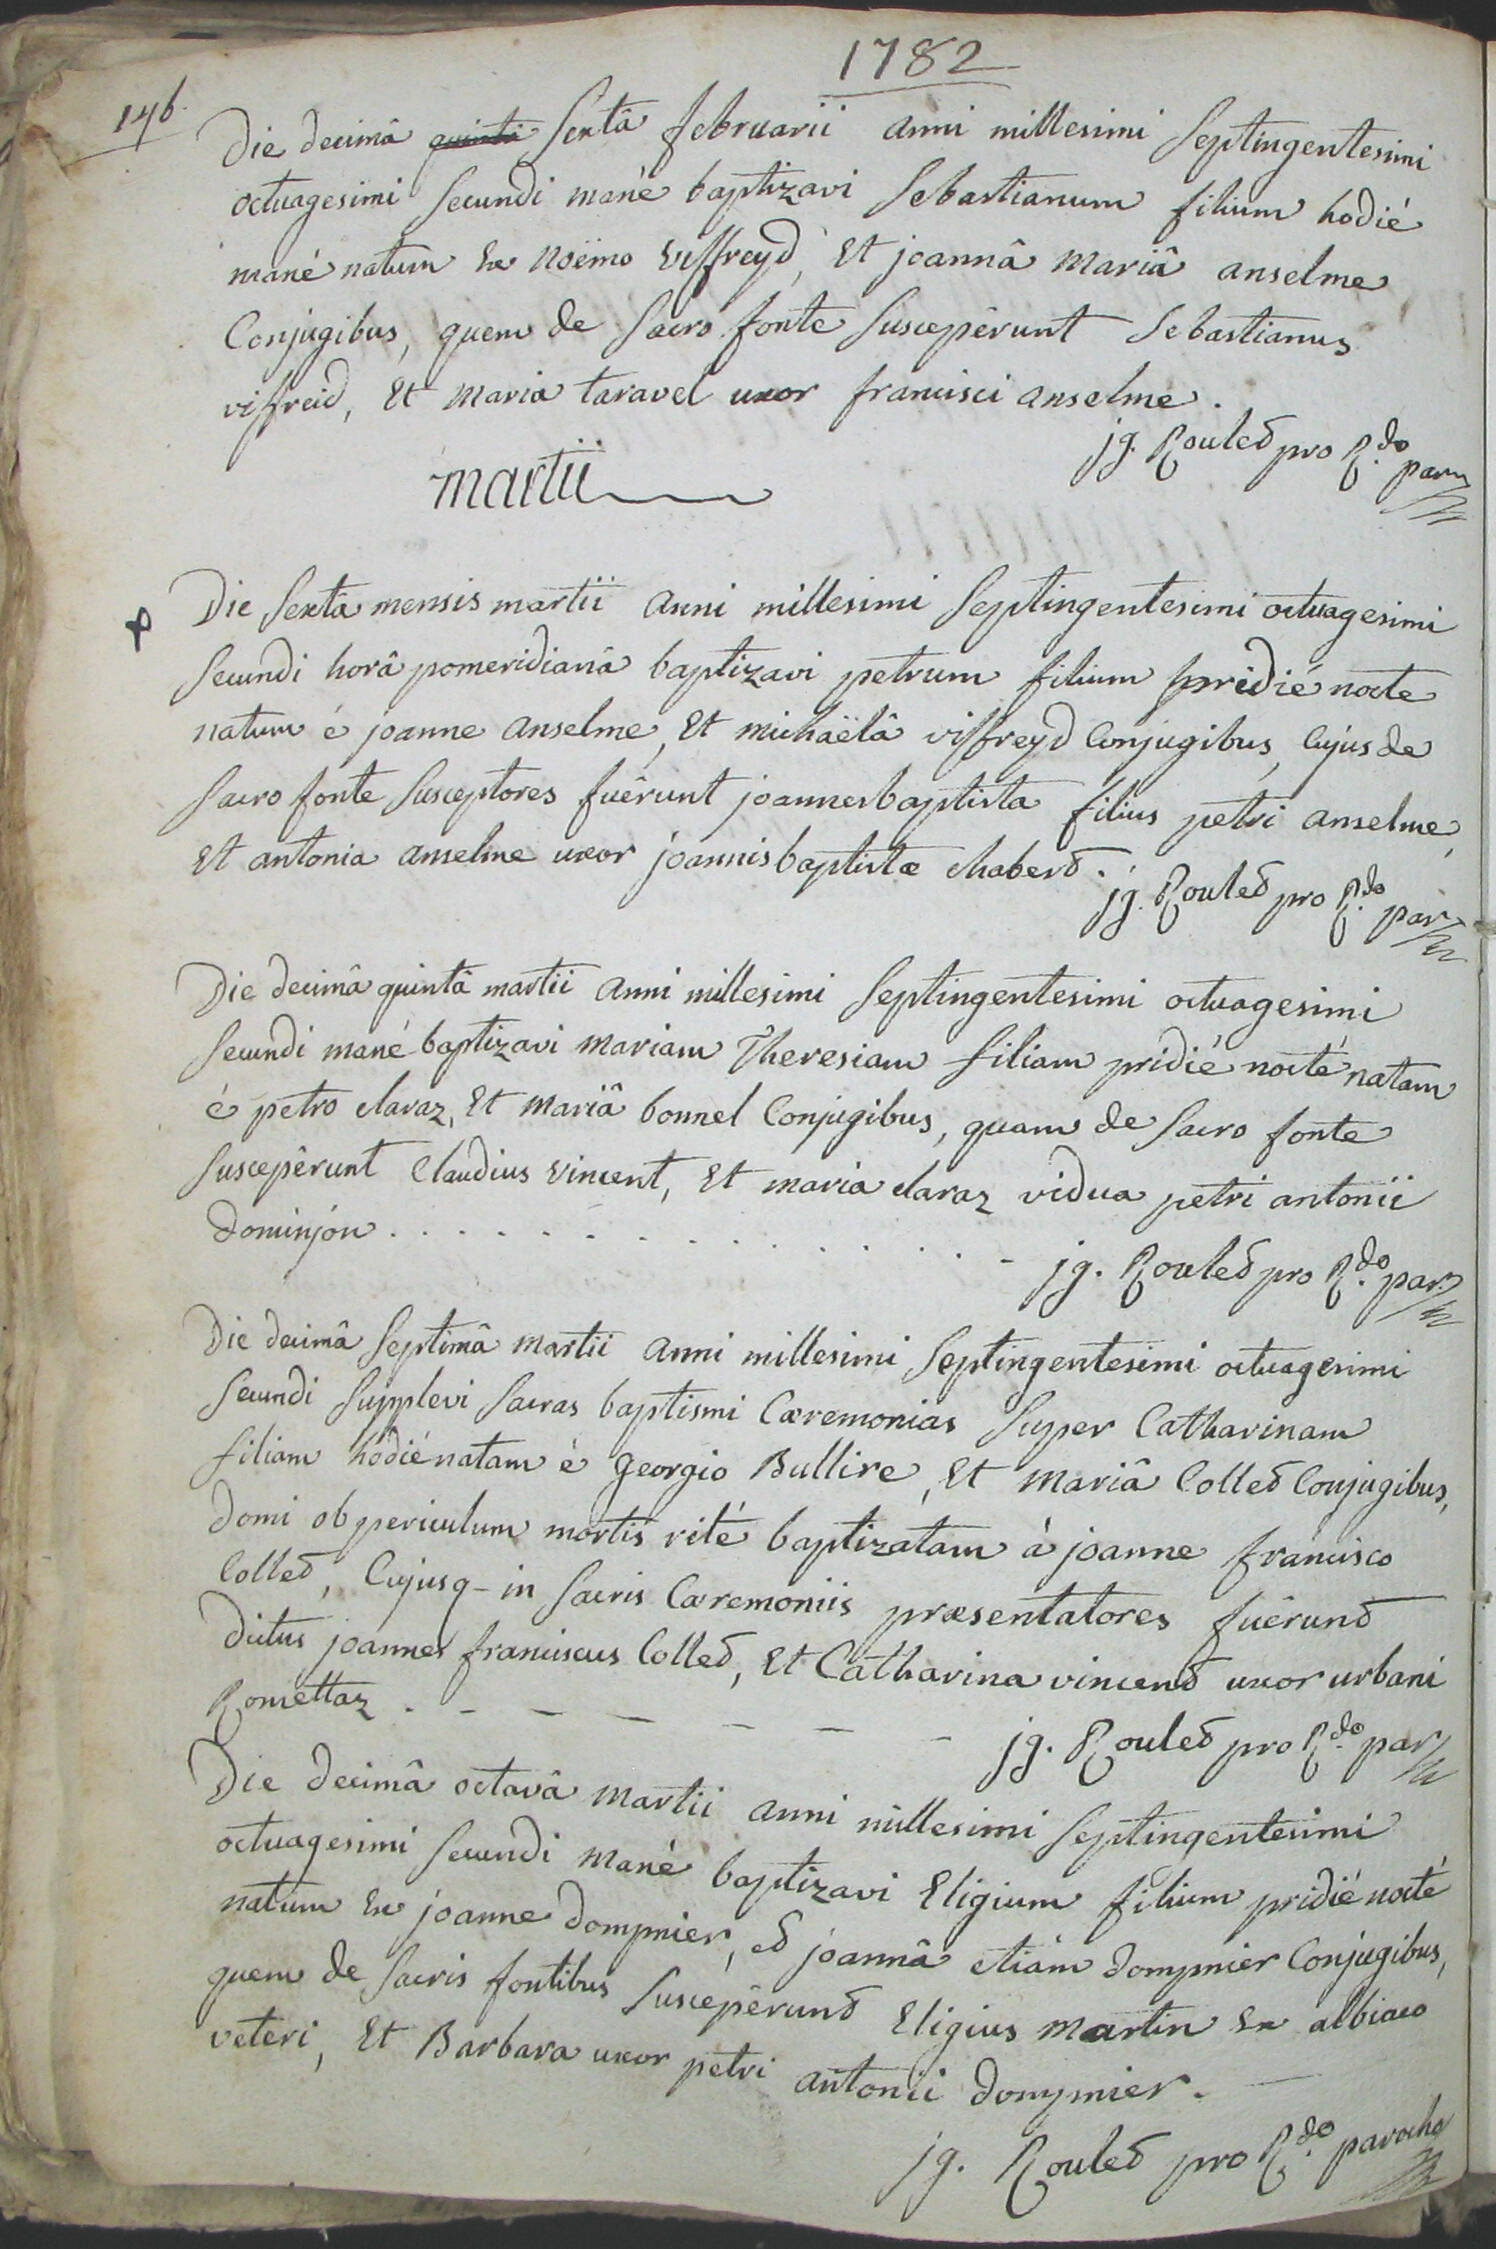 1782
146.
Die decimâ quintâ Sextâ februarii anni millesimi Septingentesimi
octuagesimi Secundi manè baptizavi Sebastianum filium hodié
mané natum Ex noëmo Viffreyd, Et joannâ mariâ anselme
Conjugibus, quem de Sacro fonte Suscepêrunt Sebastianus
viffreid, Et maria taravel uxor francisci anselme.
jg. Rouled pro R.do par
martii
Die Sexta mensis martii anni millesimi Septingentesimi octuagesimi
Secundi horâ pomeridianâ baptizavi petrum filium pridié nocte
natum é joanne anselme, Et michaëlâ viffreyd Conjugibus, Cujus de
Sacro fonte Susceptores fuêrunt joannesbaptista filius petri anselme,
Et antonia anselme uxor joannisbaptistæ chaberd.
jg. Rouled pro R.do par
Die decimâ quintâ martii anni millesimi Septingentesimi octuagesimi
Secundi mané baptizavi mariam Theresiam filiam pridié nocté natam
é petro claraz, Et mariâ bonnel Conjugibus, quam de Sacro fonte
Suscepêrunt Claudius Vincent, Et maria claraz vidua petri antonii
dominjón . . . . . . . . . . . . . .
jg. Rouled pro R.do par.
Die decimâ Septimâ martii anni millesimi Septingentesimi octuagesimi
Secundi Supplevi Sacras baptismi Cæremonias Super Catharinam
filiam hodié natam é georgio Bullire, Et mariâ Colled Conjugibus,
domi ob periculum mortis rité baptizatam à joanne francisco
Colled, Cujusq- in Sacris Cæremoniis præsentatores fuêrund
dictus joannes franciscus Colled, Et Catharina vincend uxor urbani
Romettaz . - - - - - -
jg. Rouled pro R.do par
Die decimâ octavâ martii anni millesimi Septingentesimi
octuagesimi Secundi mané baptizavi Eligium filium pridié nocté
natum Ex joanne dompnier, ed joannâ etiám dompnier Conjugibus,
quem de Sacris fontibus Suscepêrund Eligius martin Ex albiaco
veteri, Et Barbara uxor petri antonii dompnier.
jg. Rouled pro R.do parocho